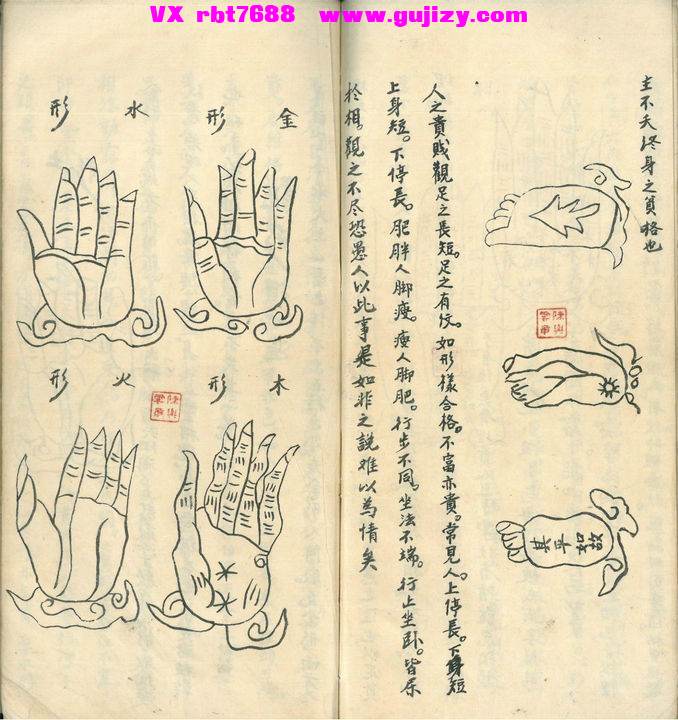 VX rbt7688 www.gujizy.com
主不夫终身之貟格也
其平如故
人之貴贱觀足之長短。足之有伩。如形樣合格。不富亦貴。常見人。上停長。下身短
上身短。下停長。肥胖人脚瘦。瘦人脚肥。行步不同。坐法不端。行止坐卧。皆
扵相。觀之不尽恐愚人以此事是如非之說难以為情矣
金形
水形
木形
火形